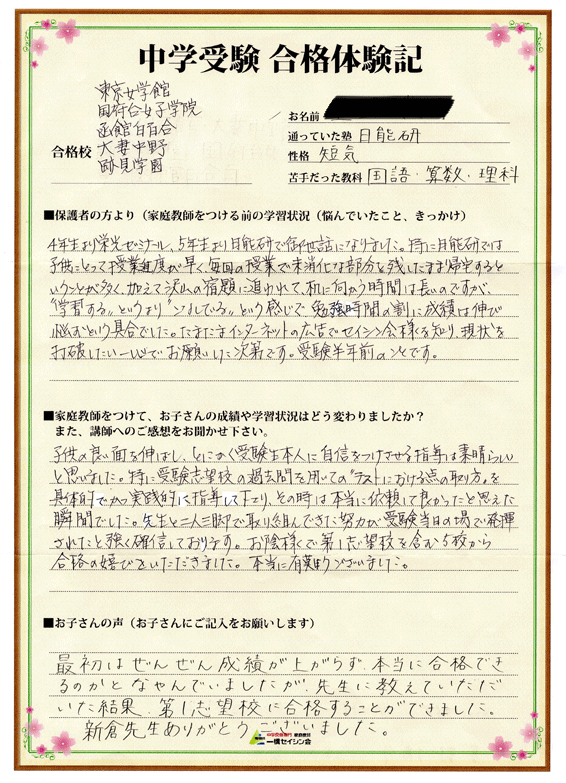 中学受験 合格体験記
合格校
東京女学館
国府台女子学院
函館白百合
大妻中野
跡見学園
お名前
通っていた塾 日能研
性格 短気
苦手だった教科 国語・算数・理科
■保護者の方より（家庭教師をつける前の学習状況（悩んでいたこと、きっかけ）
4年生より栄光ゼミナール、5年生より日能研で御世話になりました。特に日能研では
子供にとって授業進度が早く、毎回の授業で未消化な部分を残したまま帰宅すると
いうことが多く、加えて沢山の宿題に追われて、机に向かう時間は長いのですが、
"学習する"というより"こなしている"という感じで勉強時間の割に成績は伸び
悩むという具合でした。たまたまインターネットの広告でセイシン会様を知り、現状を
打破したい一心でお願いした次第です。受験半年前のことです。
■家庭教師をつけて、お子さんの成績や学習状況はどう変わりましたか？
また、講師へのご感想をお聞かせ下さい。
子供の良い面を伸ばし、とにかく受験生本人に自信をつけさせる指導は素晴らしい
と思いました。特に受験志望校の過去問を用いての"テストにおける点の取り方"を
具体的でかつ実践的に指導して下さり、その時は本当に依頼して良かったと思えた
瞬間でした。先生と二人三脚で取り組んできた努力が受験当日の場で発揮
されたと強く確信しております。お陰様で第1志望校を含む5校から
合格の喜びをいただきました。本当に有難うございました。
■お子さんの声（お子さんにご記入をお願いします）
最初はぜんぜん成績が上がらず、本当に合格でき
るのかとなやんでいましたが、先生に教えていただ
いた結果、第1志望校に合格することができました。
新倉先生ありがとうございました。
中学受験専門 家庭教師
一橋セイシン会